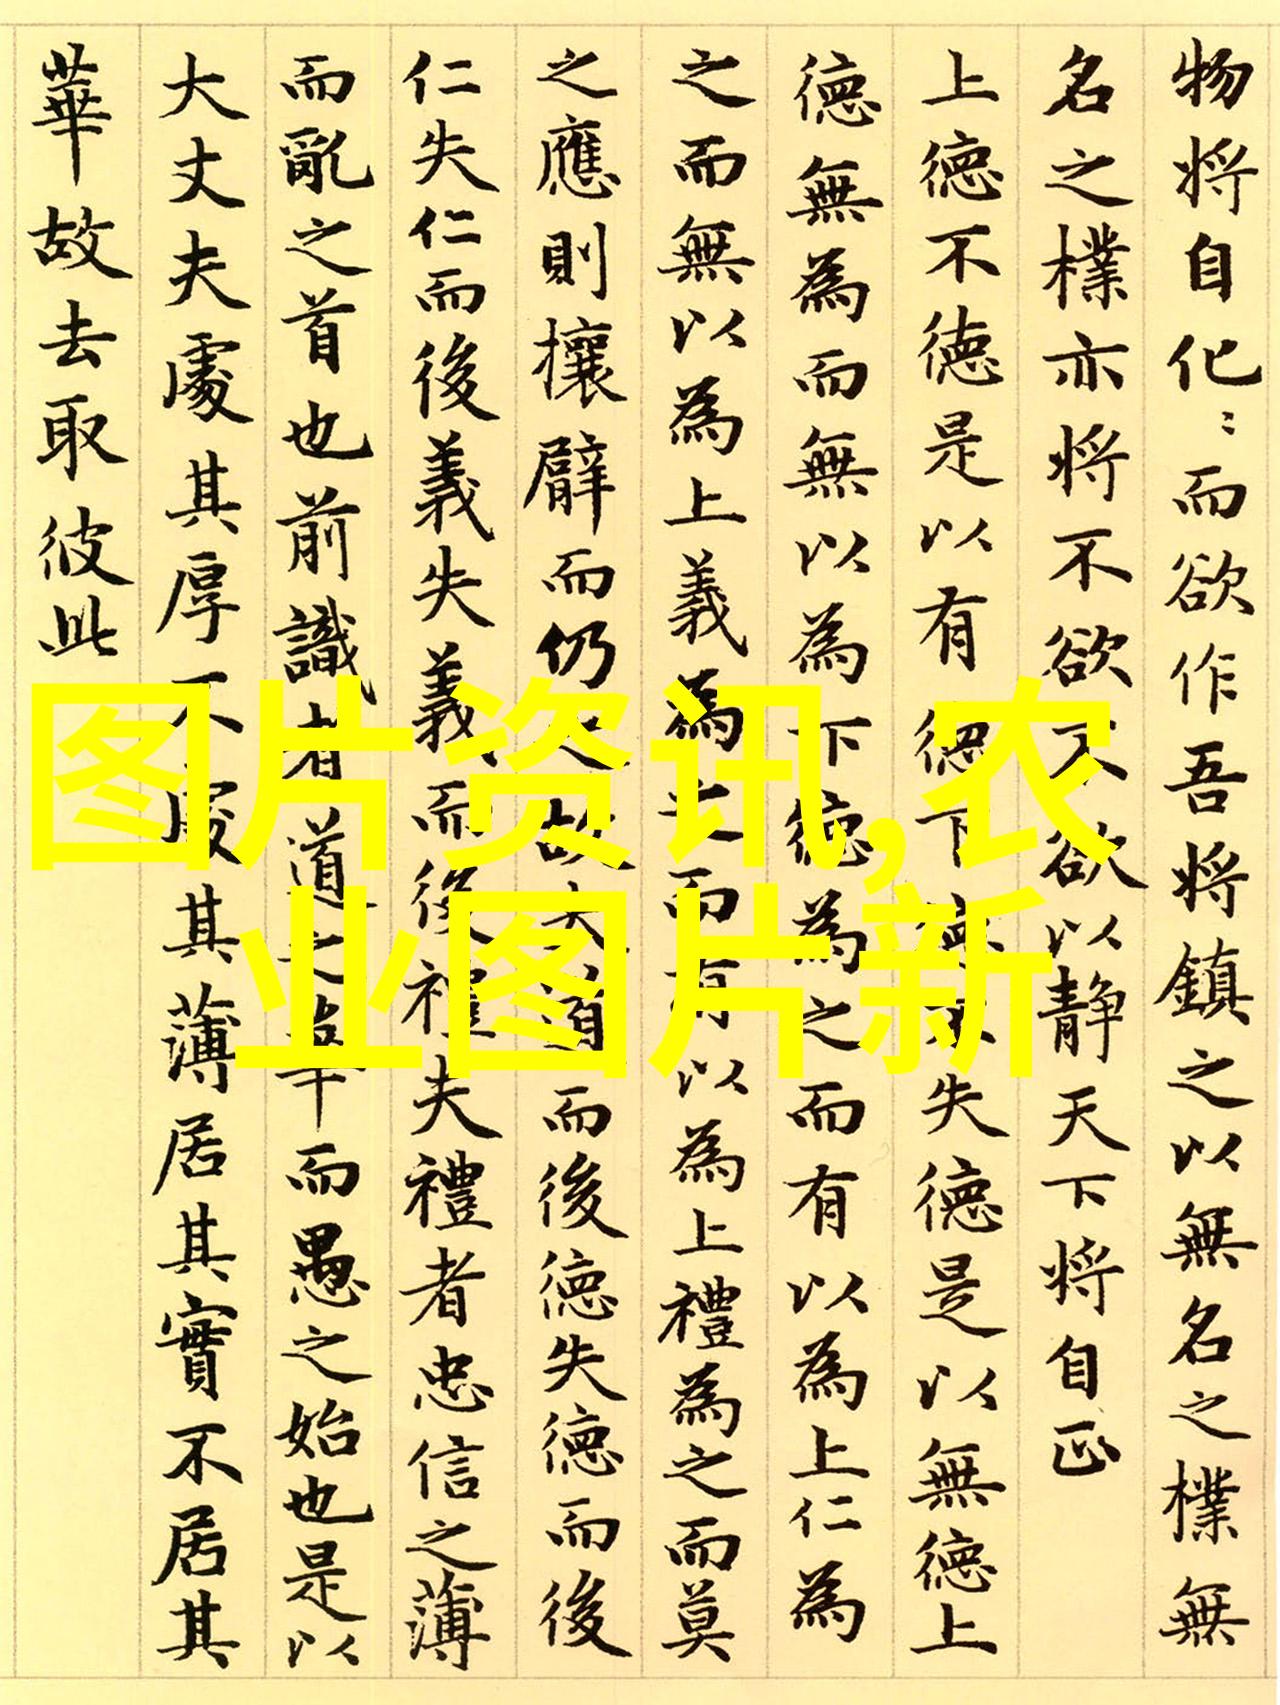 物将自化〻而欲作吾将鎮之以無名之樸無
名之樸亦将不欲不欲以静天下将自正
上徳不徳是以有徳下徳不失徳是以無徳上
徳無為而無以為下徳為之而有以為上仁為
之而無以為上義為之而有以為上禮為之而莫
之應則攘臂而仍之故失道而後徳失徳而後
仁失仁而後義失義而後禮夫禮者忠信之薄
而亂之首也前識者道之華而愚之始也是以
大丈夫處其厚不處其薄居其實不居其
華故去取彼此
图片资讯,农
业图片新